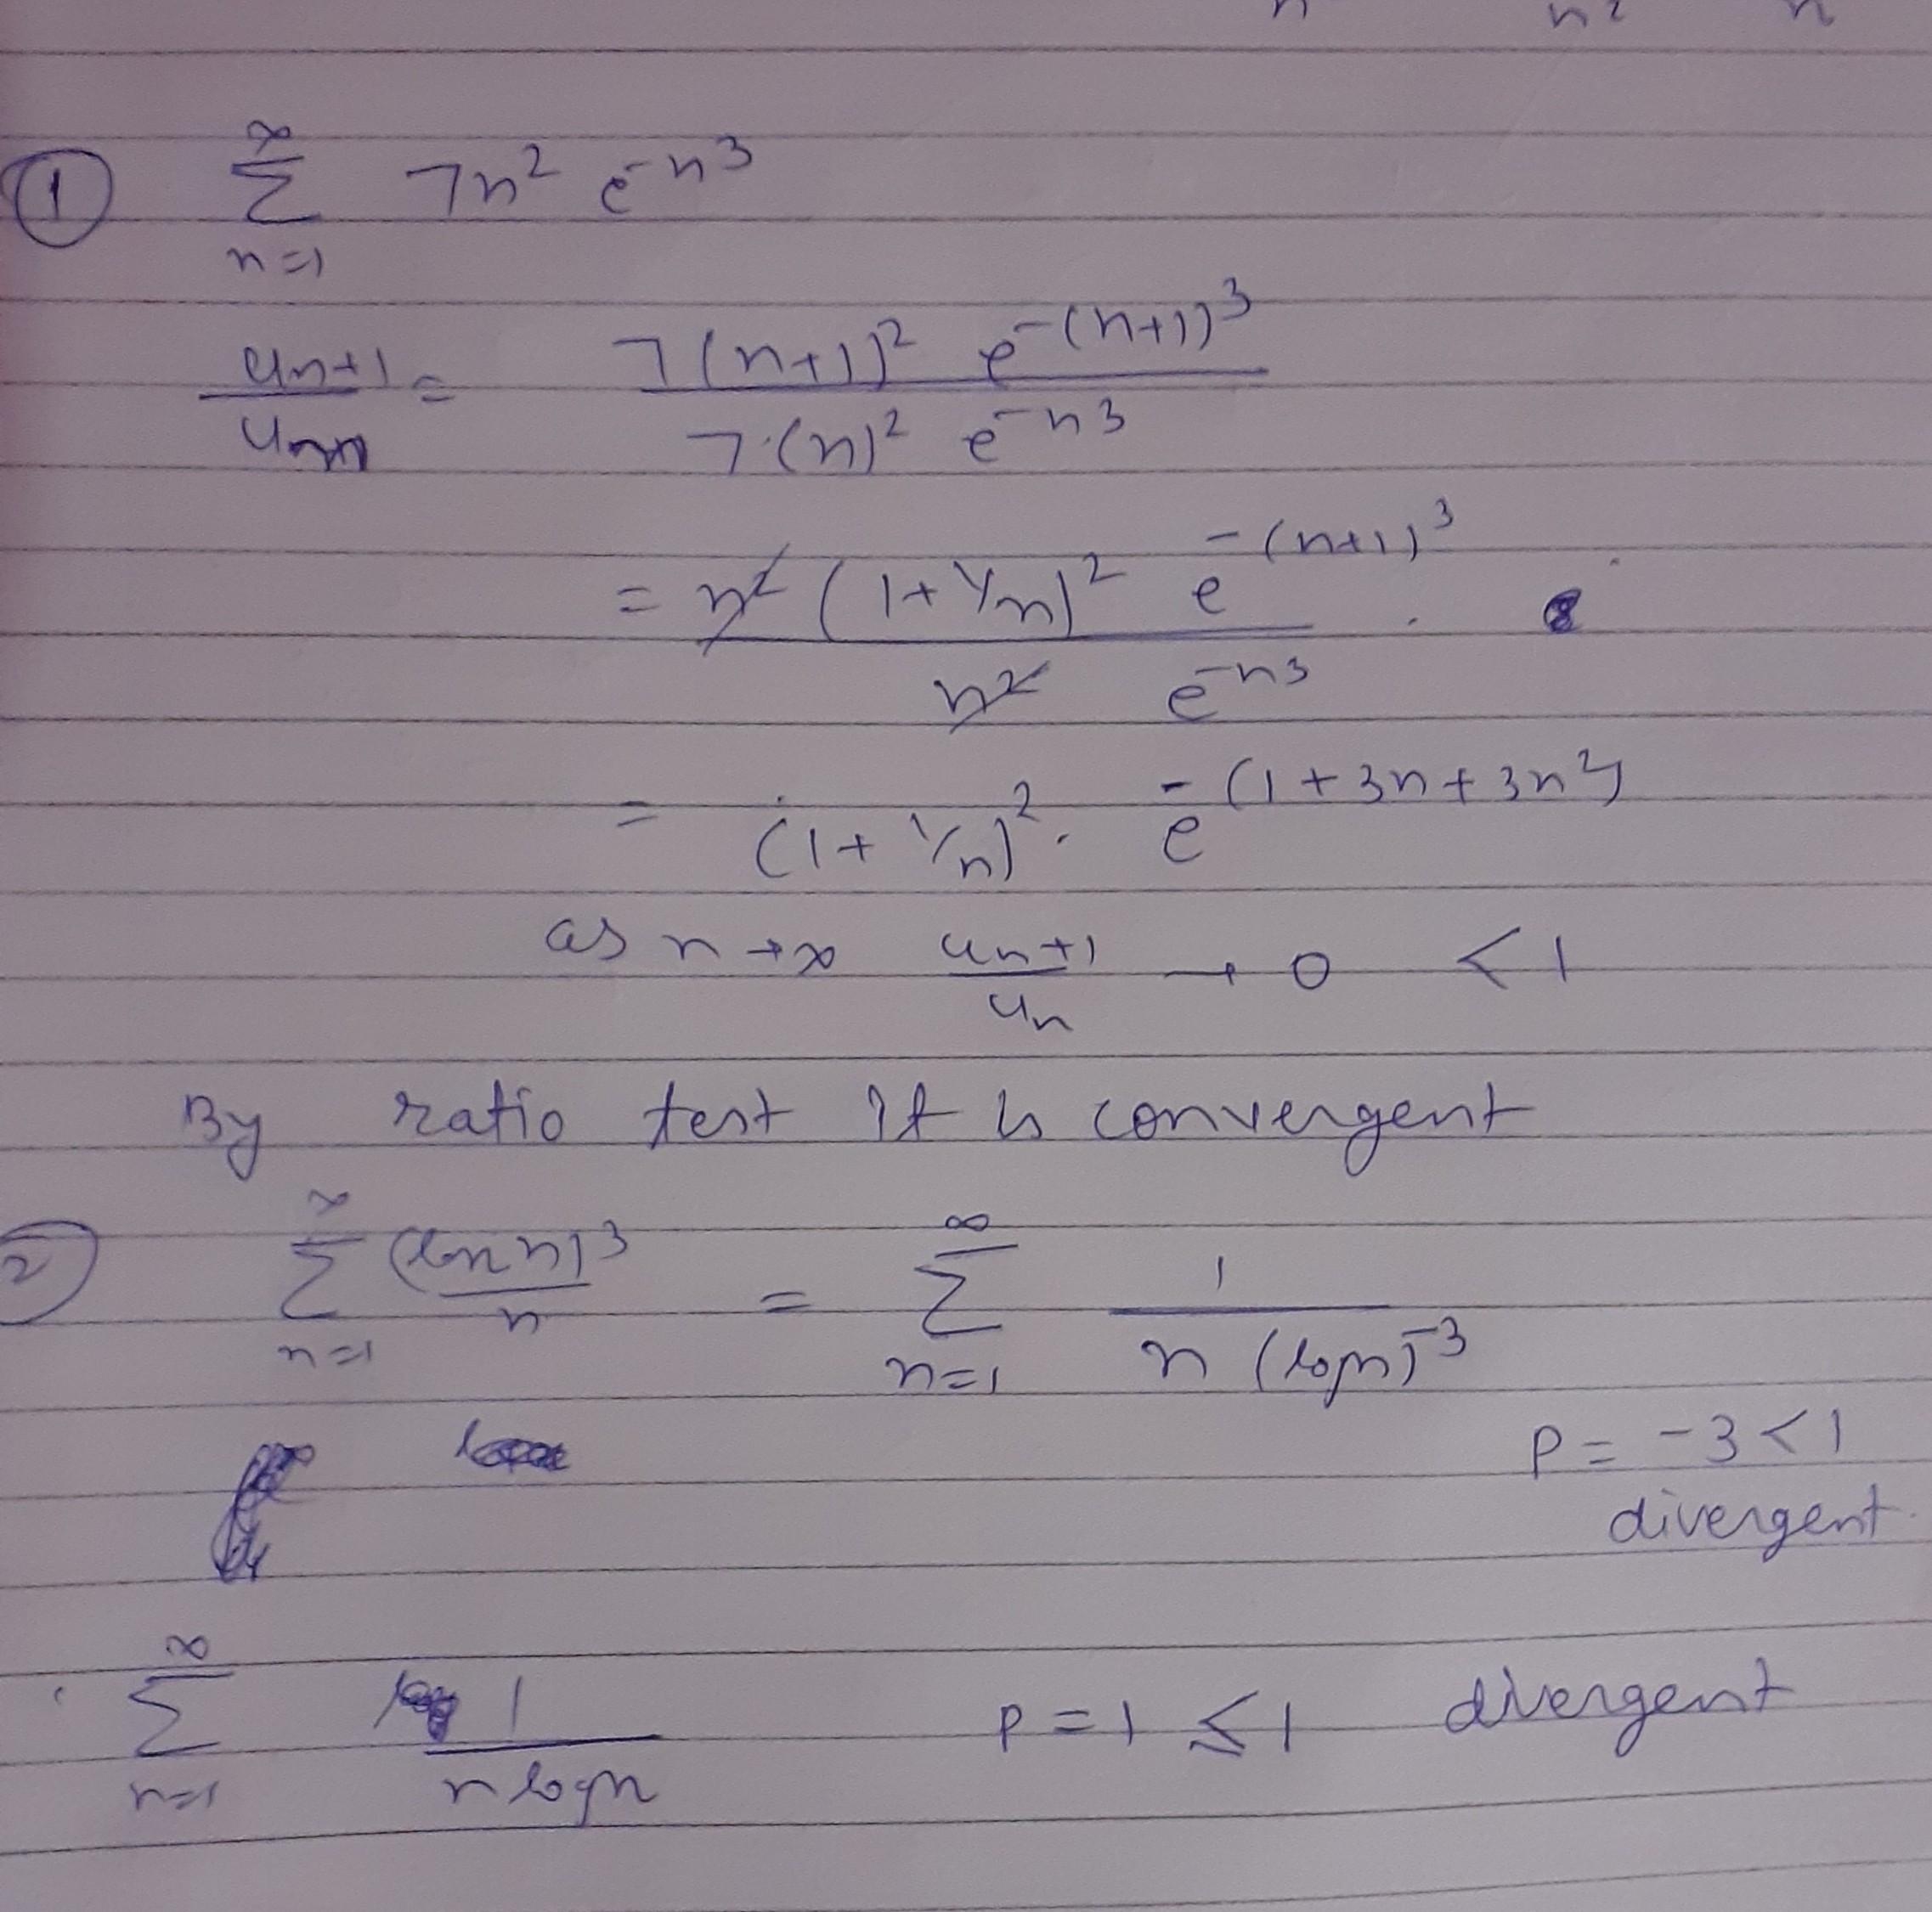 n n² n
① ∞ Σ n=1 7n² e^-n³
un+1/un = 7(n+1)² e^-(n+1)³ / 7·(n)² e^-n³
= n² (1+1/n)² e^-(n+1)³ / n² e^-n³
= (1+1/n)². e^-(1+3n+3n²)
as n→∞ un+1/un → 0 <1
By ratio test it is convergent
② ∞ Σ n=1 (ln n)³/n = ∞ Σ n=1 1/n (logn)^-3
P = -3<1
divergent.
∞ Σ n=1 1/n logn P=1 ≤1 divergent